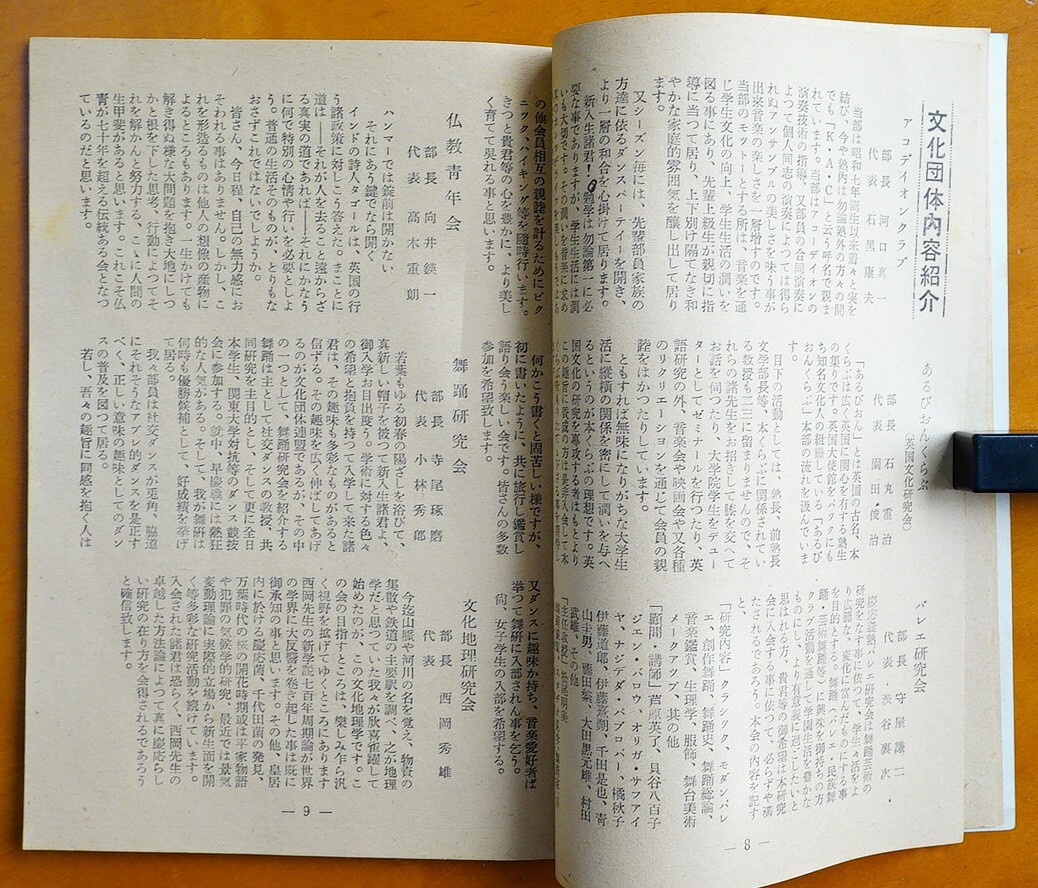 文化団体内容紹介
アコデイオンクラブ
部長 河口真一
代表 石黒康夫
当部は昭和十年誕生以来着々と実を
結び、今や塾内は勿論塾外の方々の間
でも「K・A・C」と云う呼名で親ま
れています。当部はアコーデイオンの
演奏技術の指導、又部員の合同演奏に
よつて個人同志の演奏によつては得ら
れぬアンサンブルの美しさを味う事が
出来音楽の楽しさを一層増すのです。
当部のモツトーとする所は、音楽を通
じ学生文化の向上、学生生活の潤いを
図る事にあり、先輩上級生が親切に指
導に当つて居り、上下別け隔てなき和
やかな家庭的雰囲気を醸し出して居り
ます。
又シーズン毎には、先輩部員家族の
方達に依るダンスパーテイーを開き、
より一層の和合を心掛けて居ります。
新入生諸君!勉学は勿論第一に必
要な事でありますが、学生生活には潤
いも大切です。その潤いを音楽に求め
あるびおんくらぶ
(英国文化研究会)
部長 石丸重治
代表 園田俊治
「あるびおん」とは英国の古名、本
くらぶは広く英国に関心を有する塾生
の集りです。英国大使館をバツクに持
ち知名文化人の組織している「あるび
おんくらぶ」本部の流れを汲んでいま
す。
目下の活動としては、塾長、前塾長
文学部長等、本くらぶに関係されてい
る教授も二三に留まりませんので、そ
れらの諸先生をお招きして膝を交へて
お話を伺つたり、大学院学生をデユー
ターとしてゼミナールを行つたり、英
語研究の外、音楽会や映画会や又各種
のリクリエーシヨンを通じて会員の親
睦をはかつたりしています。
ともすれば無味になりがちな大学生
活に縦横の関係を密にして潤いを与へ
るというのが本くらぶの理想です。英
国文化の研究を専攻する者はもとより
この趣旨に賛成の方は是非入会して本
バレエ研究会
部長 守屋謙二
代表 渋谷裏次
慶応義塾バレエ研究会は舞踊芸術の
研究をなす事に依つて、学生々活をよ
り広範な、変化に富んだものにする事
を目的とする。舞踊(バレエ・民族舞
踊・芸術舞踊等)に興味を御持ちの方
クラブ活動を通して学園生活を豊かな
ものにし、より有意義に過ごしたいと
思はれる方、貴君等の御希望は本研究
会に入会する事に依つて、必らずや満
たされるであろう。本会の内容を記す
と、
「研究内容」クラシツク、モダンバレ
エ、創作舞踊、舞踊史、舞踊総論、
音楽鑑賞、生理学、服飾、舞台美術
メークアツプ、其の他
「顧問・講師」芦原英了、貝谷八百子
ジエン・バロウ、オリガ・サフアイ
ヤ、ナジデダ・パブロバー、橘秋子
伊藤道郎、伊藤喜朔、千田是也、青
山圭男、薄田紫、大田黒元雄、村田
武雄、その他
― 8 ―
の他会員相互の親睦を計るためにピク
ニツク、ハイキング等を随時行います。
きつと貴君等の心を豊かに、より美し
く育てて呉れる事と思います。
仏教青年会
部長 向井鍈一
代表 高木重朗
ハンマーでは錠前は開かない
それにあう鍵でなら開く
インドの詩人タゴールは、英国の行
う諸政策に対しこう答えた。まことに
道は――それが人を去ること遠からざ
る真実の道であれば――それにかなう
に何で特別の心情や行いを必要としよ
う。普通の生活そのものが、とりもな
おさずこれではないでしようか。
皆さん、今日程、自己の無力感にお
そわれる事はありません。しかし、こ
れを形造るものは他人の想像の産物に
よるところもあります。一生かけても
解き得ぬ様な大問題を抱き大地にしつ
かと根を下した思考、行動によつてそ
れを解かんと努力する、こゝに人間の
生甲斐があると思います。これこそ仏
青が七十年を超える伝統ある会となつ
ているのだと思います。
何かこう書くと固苦しい様ですが、
初に書いたように、共に旅行し鑑賞し
語り合う楽しい会です。皆さんの多数
参加を希望致します。
舞踊研究会
部長 寺尾琢磨
代表 小林秀郎
若葉もゆる初春の陽ざしを浴びて、
真新しい帽子を被つた新入生諸君よ、
御入学お目出度う。学術に対する色々
の希望と抱負を持つて入学して来た諸
君は、その趣味も多彩なものがあると
信ずる。その趣味を広く伸ばしてあげ
るのが文化団体連盟であるが、その中
の一つとして、舞踊研究会を紹介する
舞踊は主として社交ダンスの教授、共
同研究を主目的とし、そして更に全日
本学生、関東大学対抗等のダンス競技
会に参加する。就中、早慶戦には熱狂
的な人気がある。そして、我が舞研は
何時も優勝候補として、好成績を挙げ
て居る。
我々部員は社交ダンスが兎角、脇道
にそれそうなアプレ的ダンスを是正す
べく、正しい意味の趣味としてのダン
スの普及を図つて居る。
若し、吾々の趣旨に同感を抱く人は
又ダンスに趣味か持ち、音楽愛好者ば
挙つて舞研に入部されん事を乞う。
尚、女子学生の入部を希望する。
文化地理研究会
部長
代表 西岡秀雄
今迄山脈や河川の名を覚え、物資の
集散や鉄道の主要駅を調べ、之が地理
学だと思つていた我々が欣喜雀躍して
始めたのが、この文化地理学です。こ
の会の目指すところは、楽しみ乍ら汎
く視野を拡げてゆくところにあります
西岡先生の新学説七百年周期論が世界
の学界に大反響を巻き起した事は既に
御承知の事と思います。その他、皇居
内に於ける慶応菌、千代田菌の発見、
万葉時代の桜の開花時期或は平家物語
や犯罪の気候学的研究、最近では景気
変動理論に実際的立場から新生面を開
く等多彩な研究活動を続けています。
入会された諸君は恐らく、西岡先生の
卓越した方法論によつて真に慶応らし
い研究の在り方を会得されるであろう
と確信致します。
― 9 ―